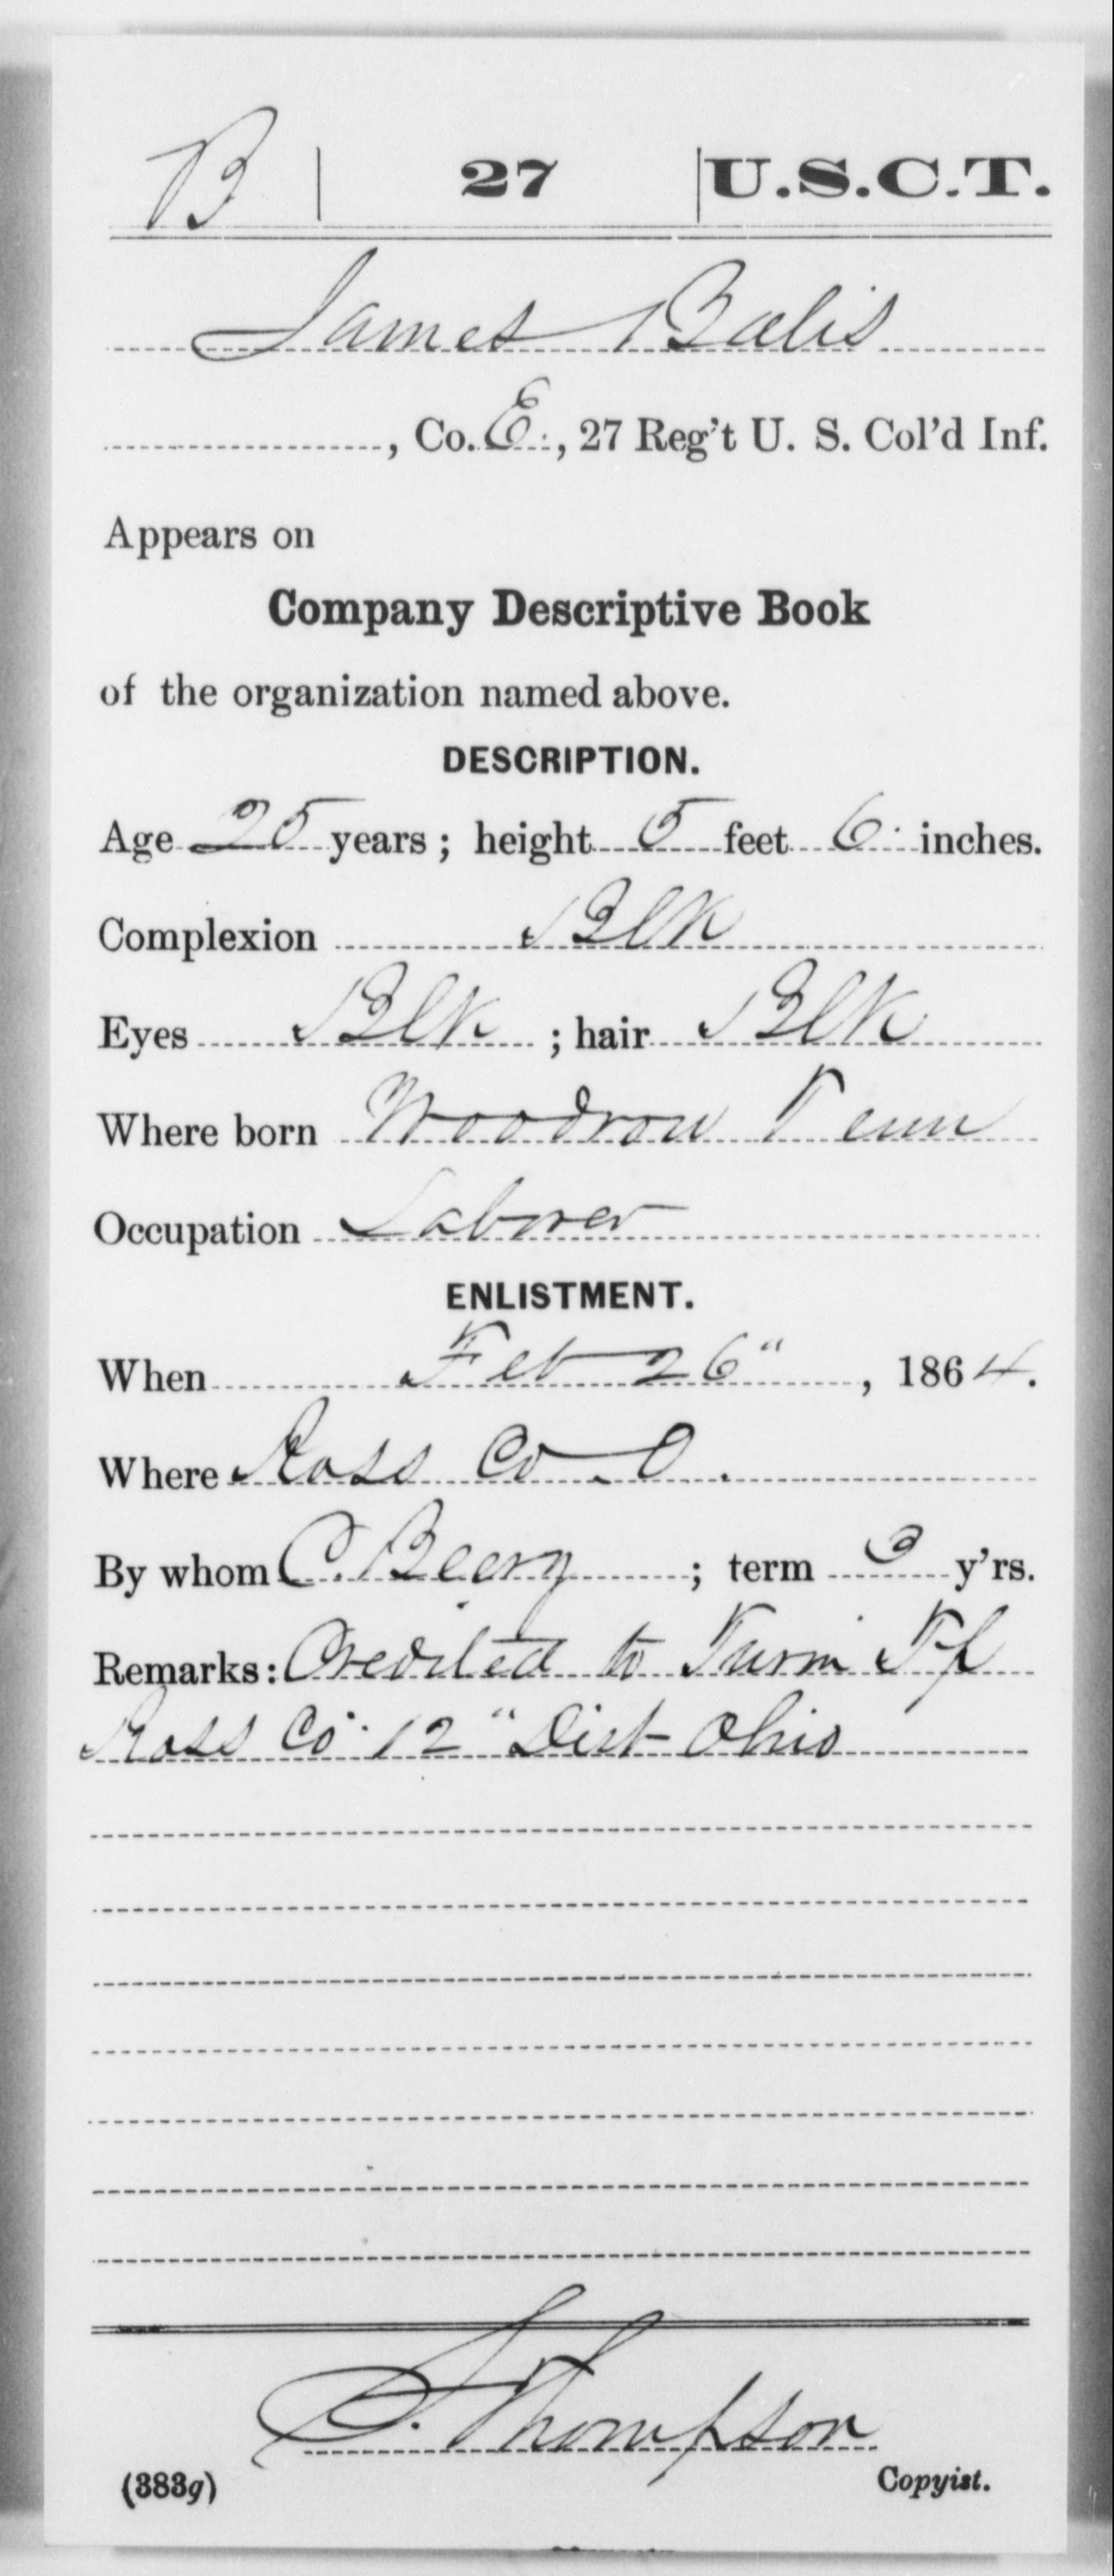 B | 27 | U.S.C.T.
James Balis
, Co. E., 27 Reg't U. S. Col'd Inf.
Appears on
Company Descriptive Book
of the organization named above.
DESCRIPTION.
Age 25 years; height 5 feet 6 inches.
Complexion Blk
Eyes Blk; hair Blk
Where born Woodrow Tenn
Occupation Laborer
ENLISTMENT.
When Feb 26", 1864.
Where Ross Co O.
By whom C. Beery; term 3 y'rs.
Remarks: Credited to Tp
Ross Co. 12" Dist Ohio
S. Thompson
(383g) Copyist.